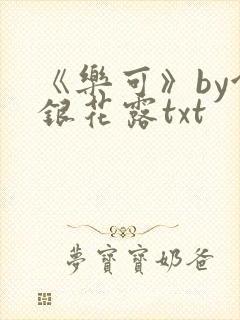 《樂可》by
銀花露txt
夢寶寶奶爸